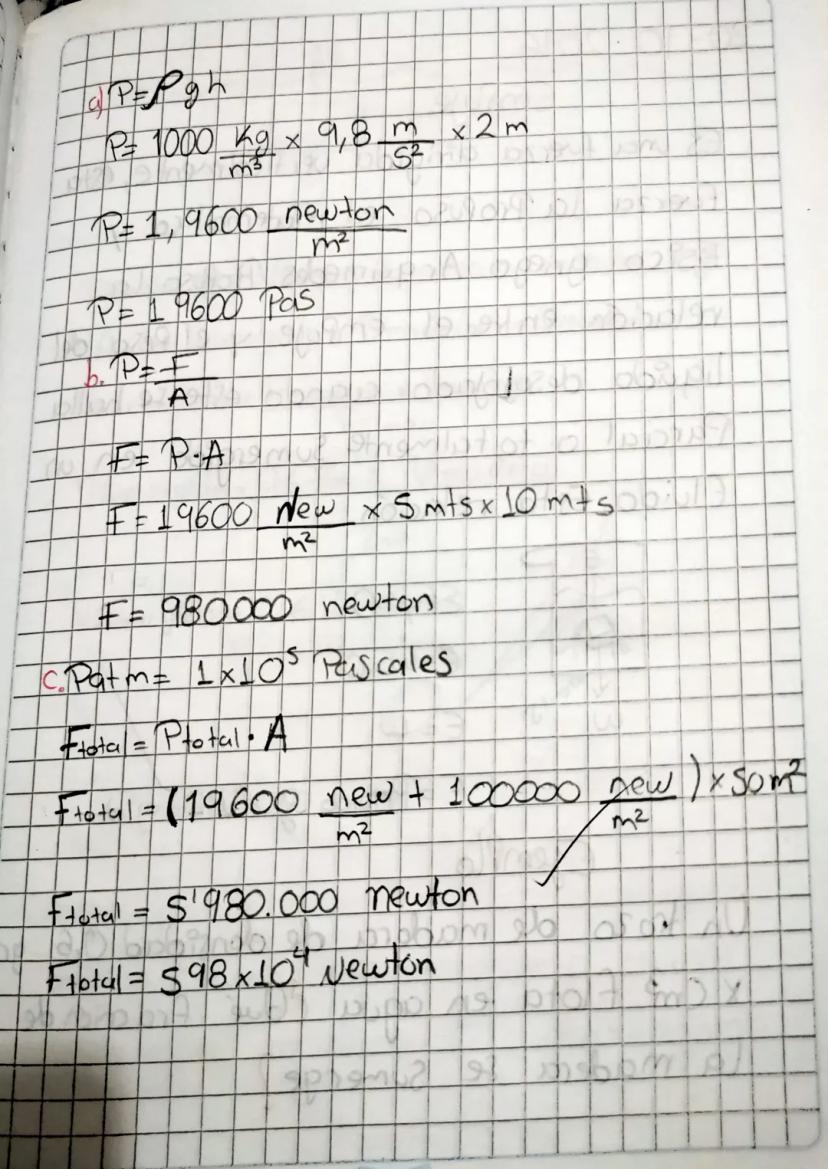 a) P=ρgh
P= 1000 Kg/m³ × 9,8 m/s² × 2 m
P= 1,9600 newton/m²
P= 19600 Pas
b. P= F/A
F= P·A
F= 19600 New/m² × 5 mts × 10 mts
F= 980000 newton
c. Patm= 1×10⁵ Pascales
Ftotal= Ptotal·A
Ftotal= (19600 new/m² + 100000 new/m²) × 50 m²
Ftotal= 5'980.000 newton
Ftotal= 598×10⁴ Newton